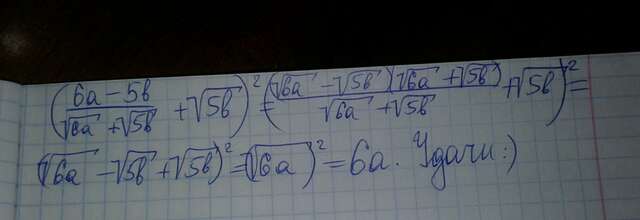 ((6a − 5b)/(√6a + √5b) + √5b)² = ((√6a − √5b)(√6a + √5b)/(√6a + √5b) + √5b)² =
(√6a − √5b + √5b)² = (√6a)² = 6a. Удачи :)